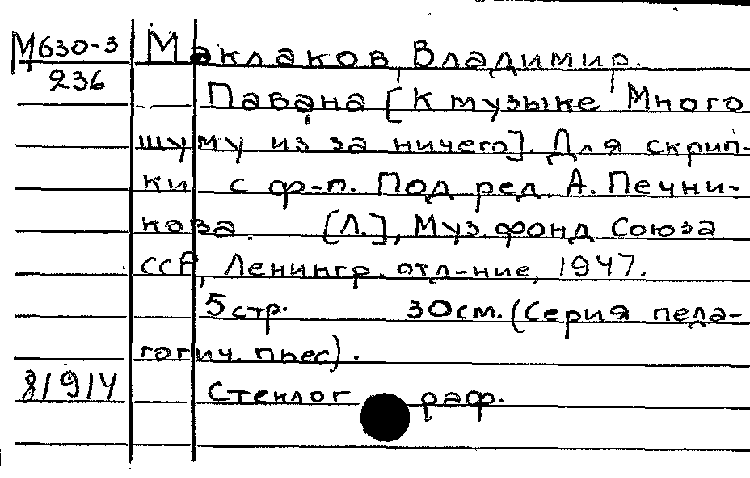 М630-3 Маклаков, Владимир.
236
Павана [К музыке "Много
шуму из за ничего]. Для скрип-
ки с ф-п. Под ред. А. Печни-
кова. [Л.], Муз.фонд Союза
ССР, Ленингр. отд-ние, 1947.
5 стр. 30см. (Серия педа-
гогич. пьес).
81914 Стеклограф.